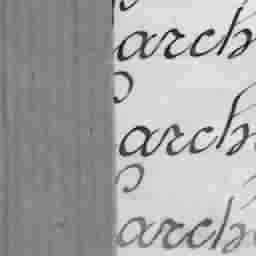 arch
arch
arch